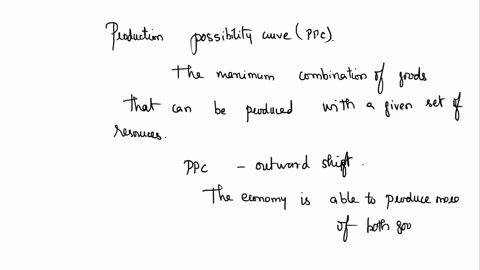 Production possibility curve (PPC).
The maximum combination of goods
that can be produced with a given set of
resources.
PPC - outward shift.
The economy is able to produce more
of both goo